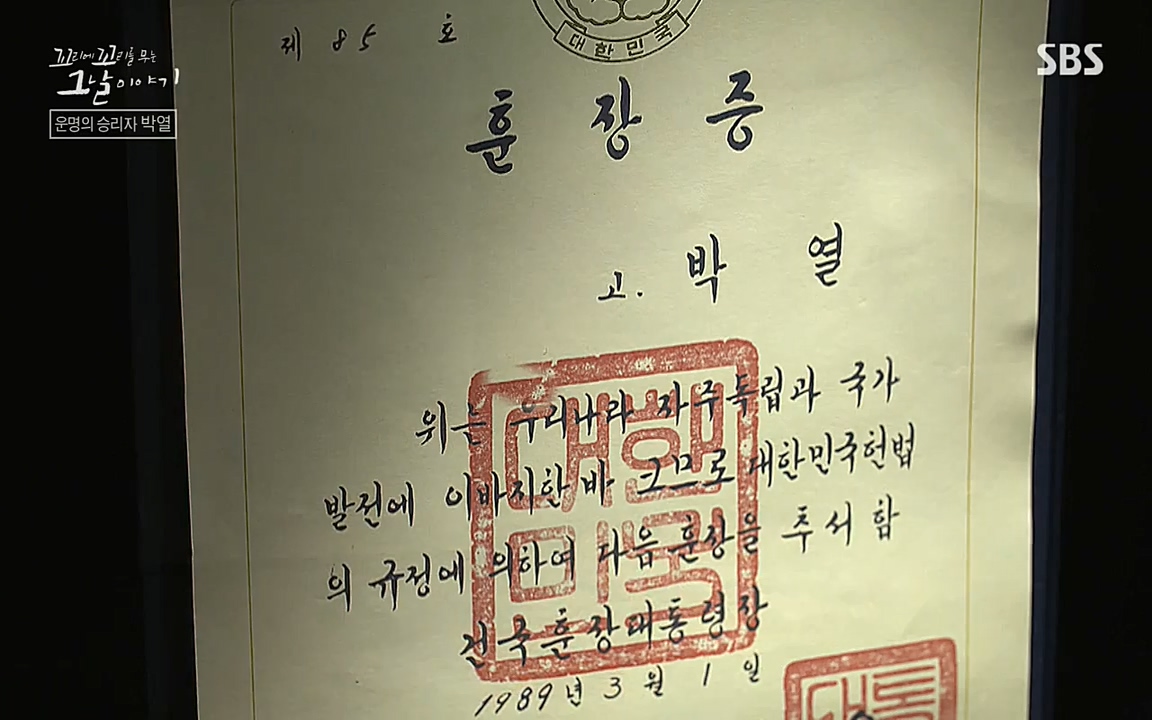 꼬리에 꼬리를 무는
그날 이야기
운명의 승리자 박열
SBS
제 85 호
대한민국
훈장증
고. 박열
위는 우리나라 자주독립과 국가
발전에 이바지한 바 크므로 대한민국헌법
의 규정에 의하여 다음 훈장을 추서함
건국훈장대통령장
1989년 3월 1일